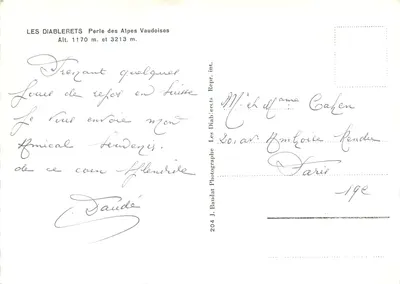 LES DIABLERETS Perle des Alpes Vaudoises
Alt. 1170 m. et 3213 m.
Prenant quelques
jours de repos en Suisse
Je vous envoie mon
Amical Souvenir.
de ce coin splendide
Daudé
204 J. Baudat Photographe Les Diablerets Repr. int.
M. et Mme Cahen
201 av
Paris
19e